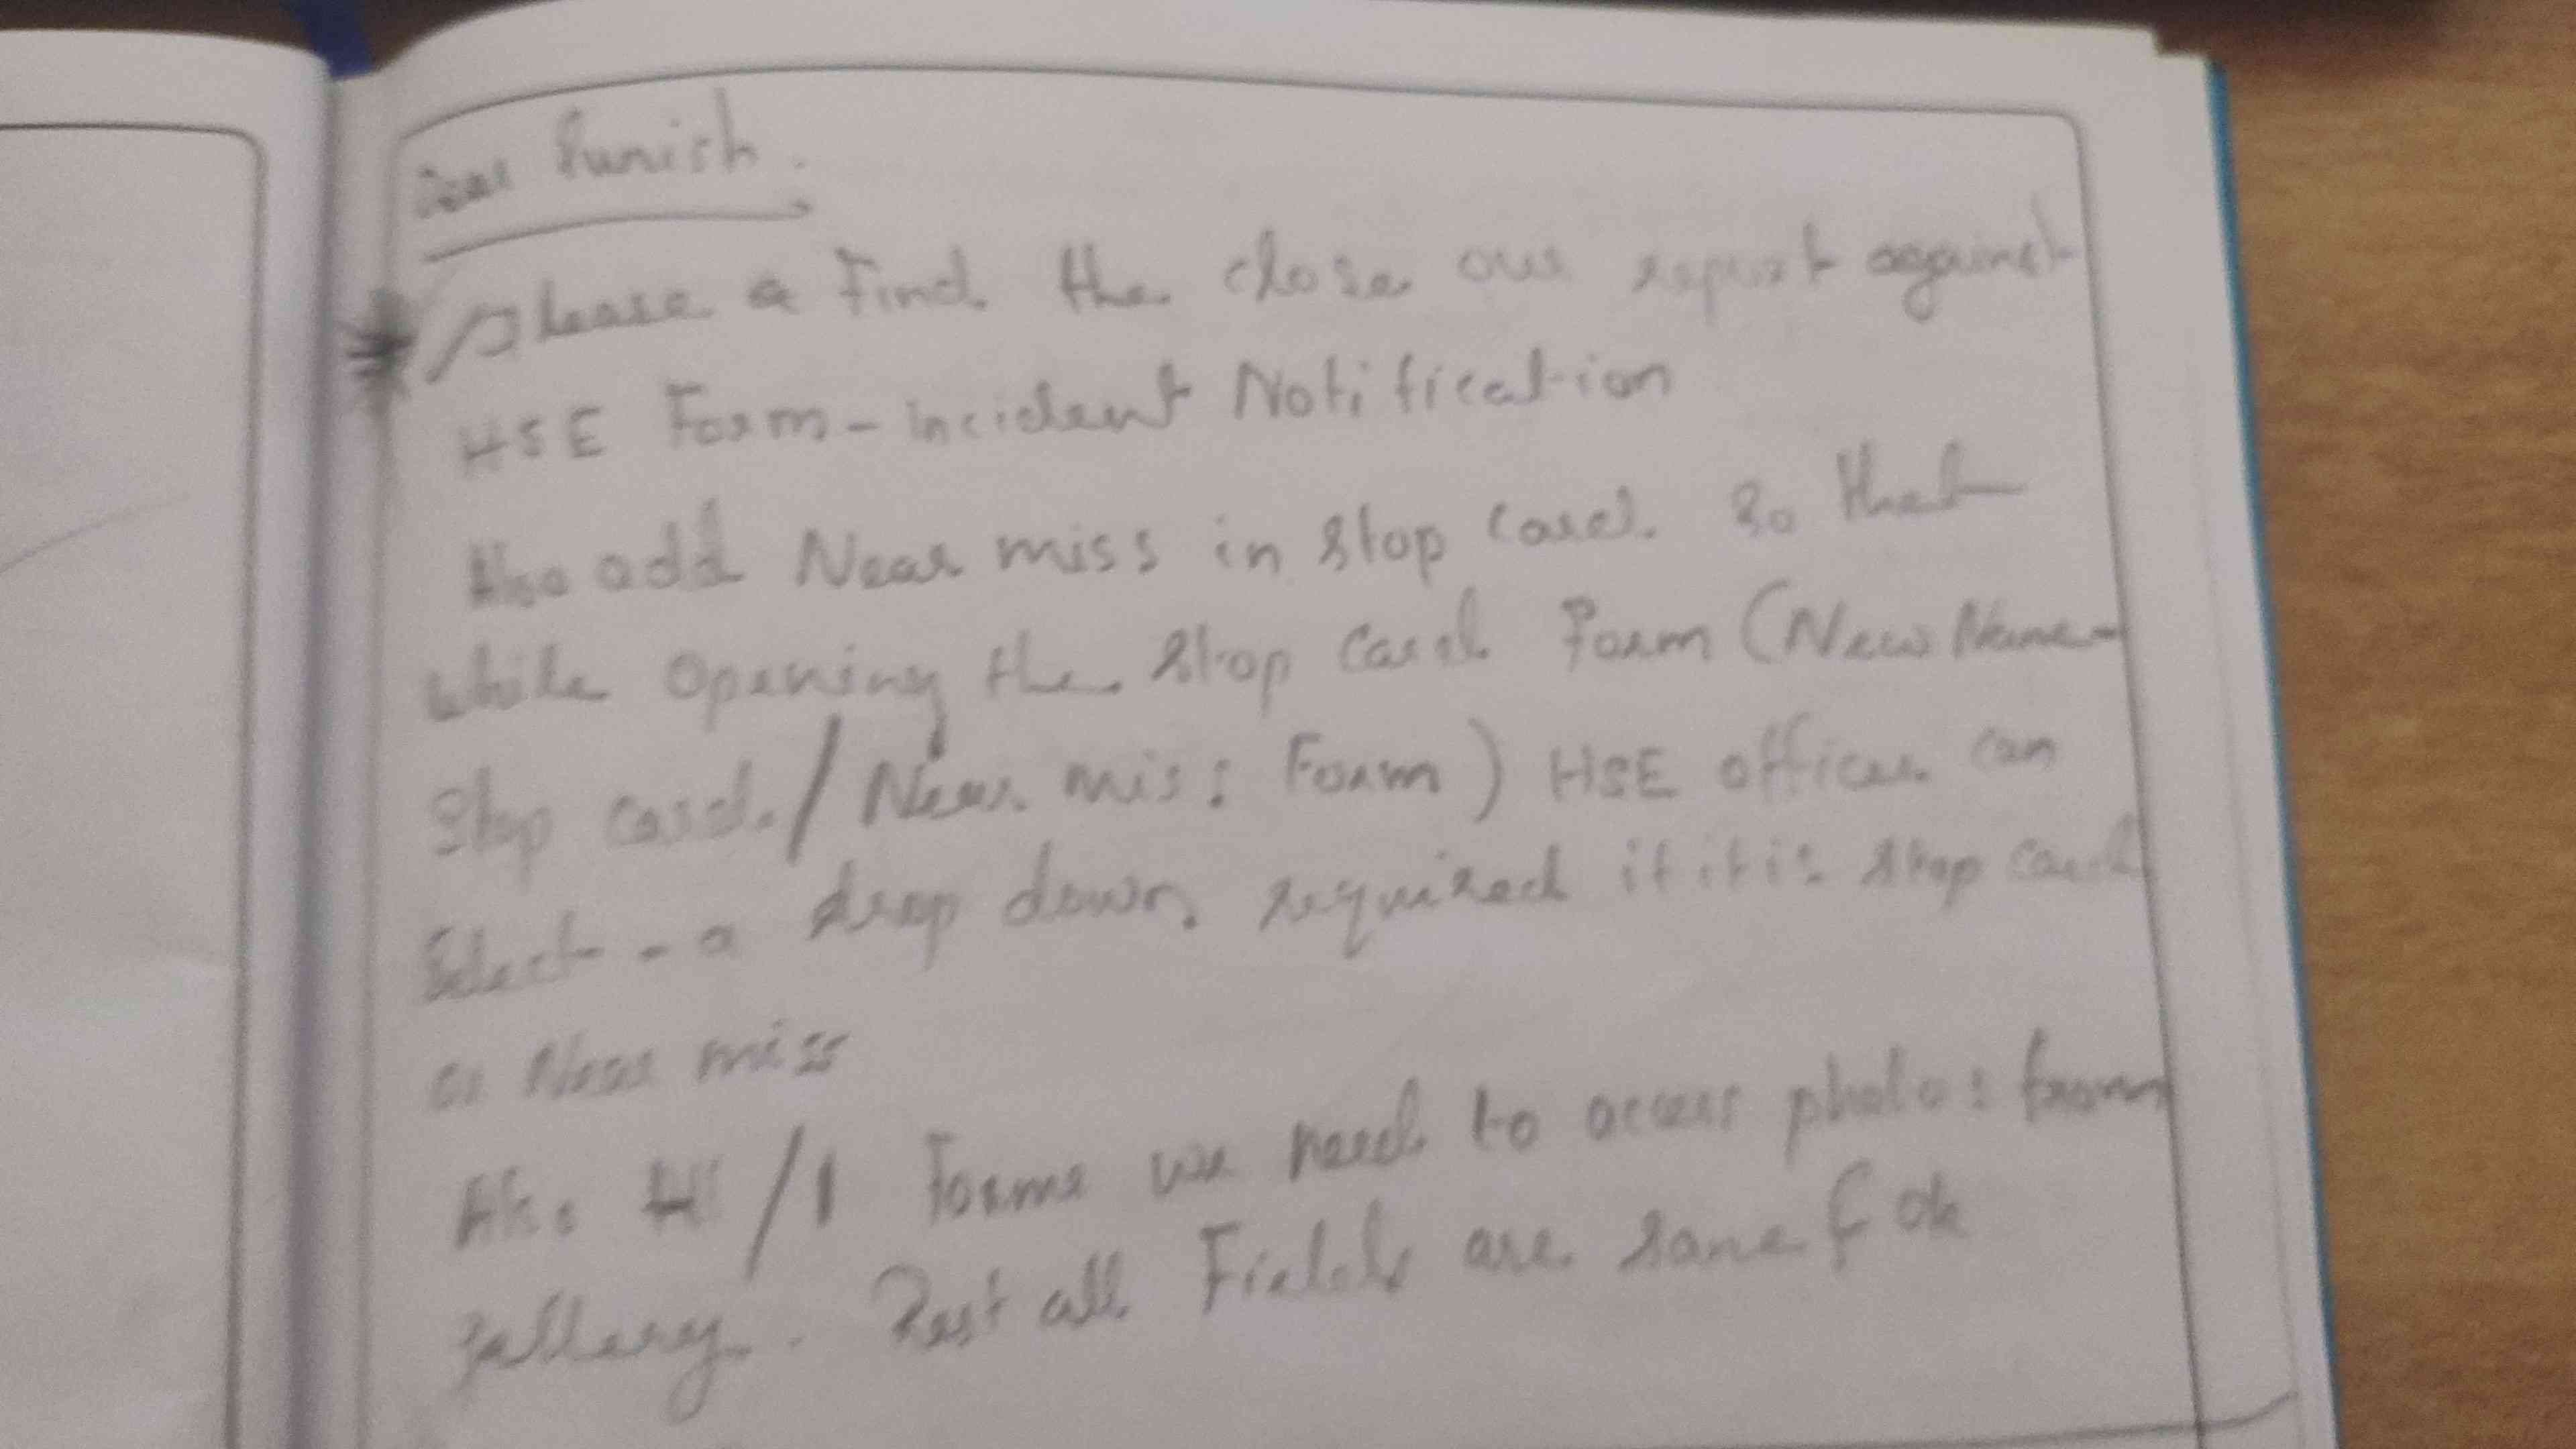 Dear Punish.
Please a Find the close our report against
HSE Form - incident Notification
Also add Near miss in Stop Card. So that
while opening the Stop Card Form (New Name -
Stop Card / Near miss Form) HSE officer can
Select - a drop down required if it is Stop Card
or Near miss
Also / Forms we need to access photos from
gallery. Rest all Fields are same & ok